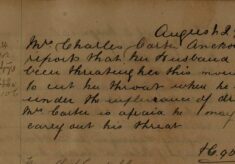 August 2
Mrs Charles Carter
reports that her Husband
been threating her this
to cut her throat when he
under the influence of
Mrs Carter is afraid he may
carry out his threat